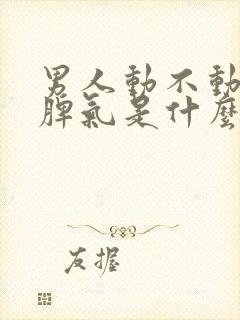 男人動不動
脾氣是什麼
友握